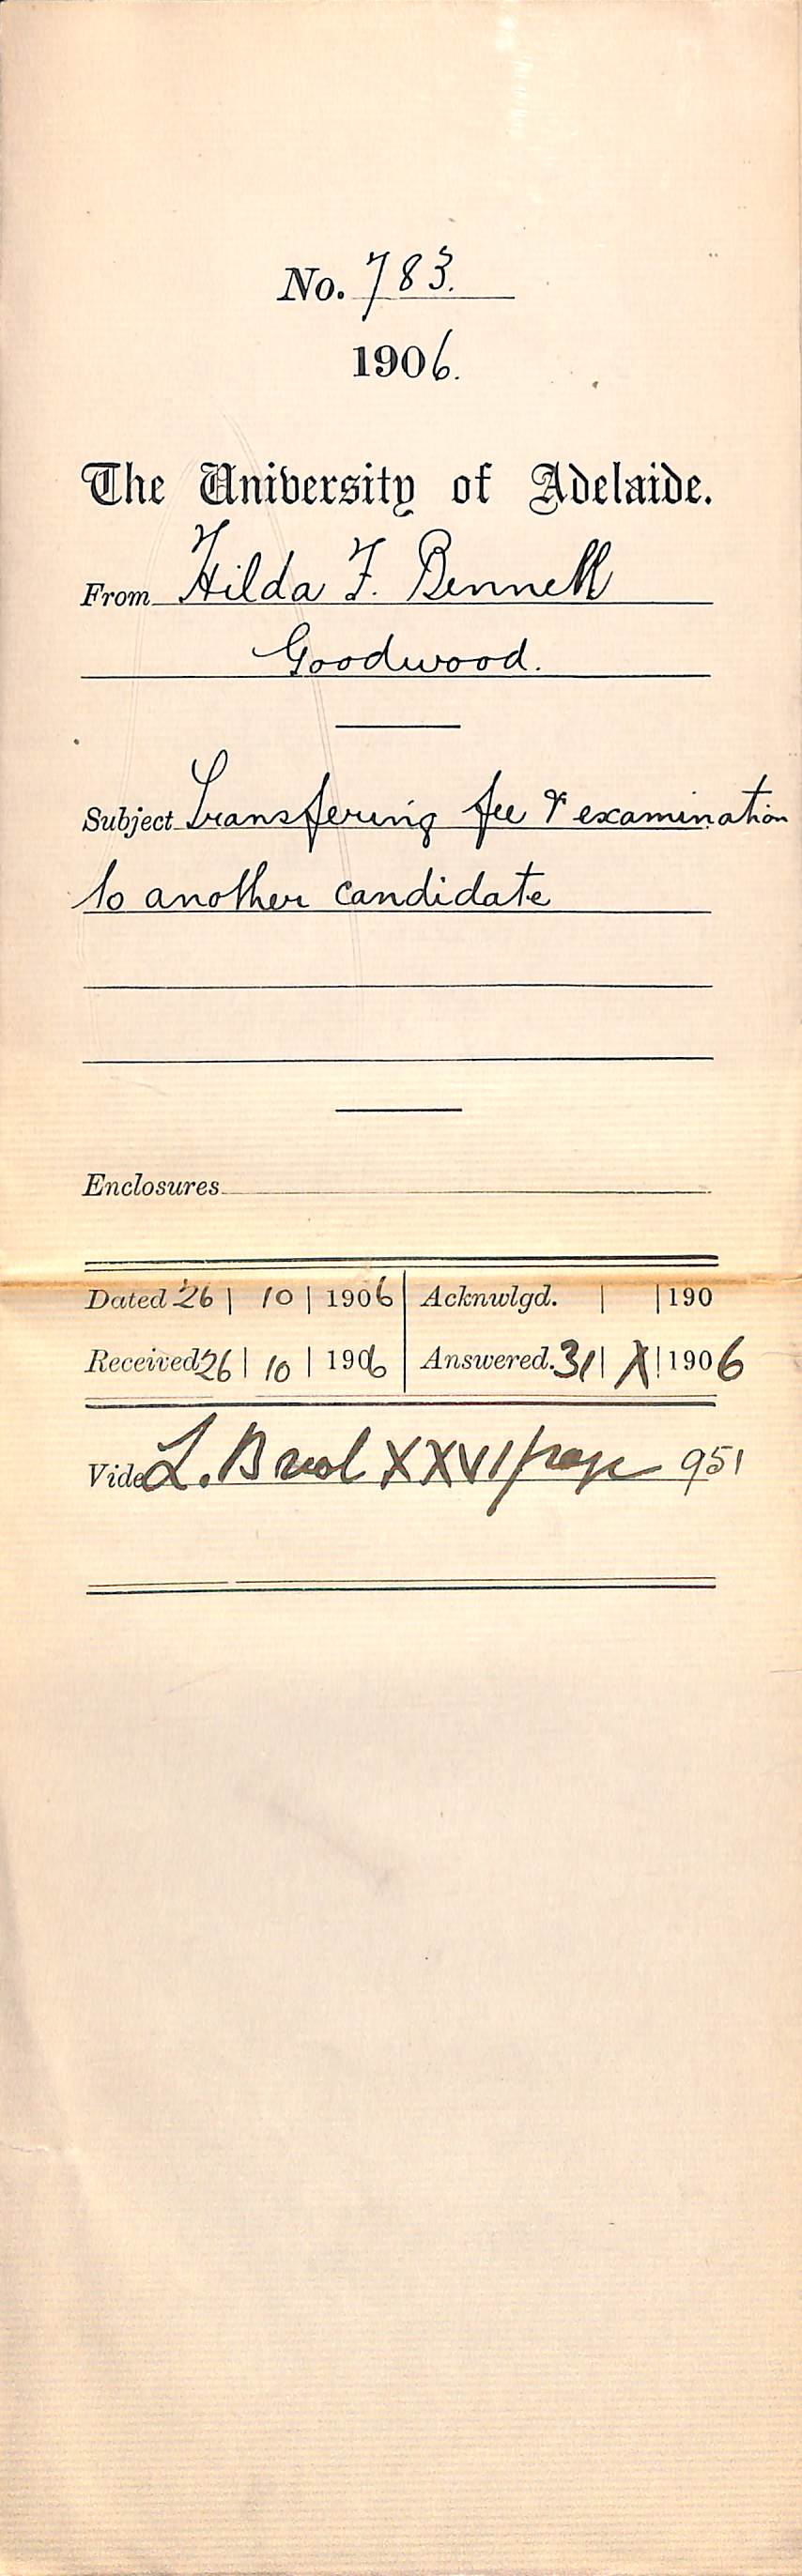 No. 783.
1906.
The University of Adelaide.
From Hilda F. Bennett
Goodwood.
Subject Transfering fee & examination
to another candidate
Enclosures
Dated 26 | 10 | 1906 Acknwlgd. | | 190
Received 26 | 10 | 1906 Answered. 31 | X | 1906
Vide L. B vol XXVI page 951